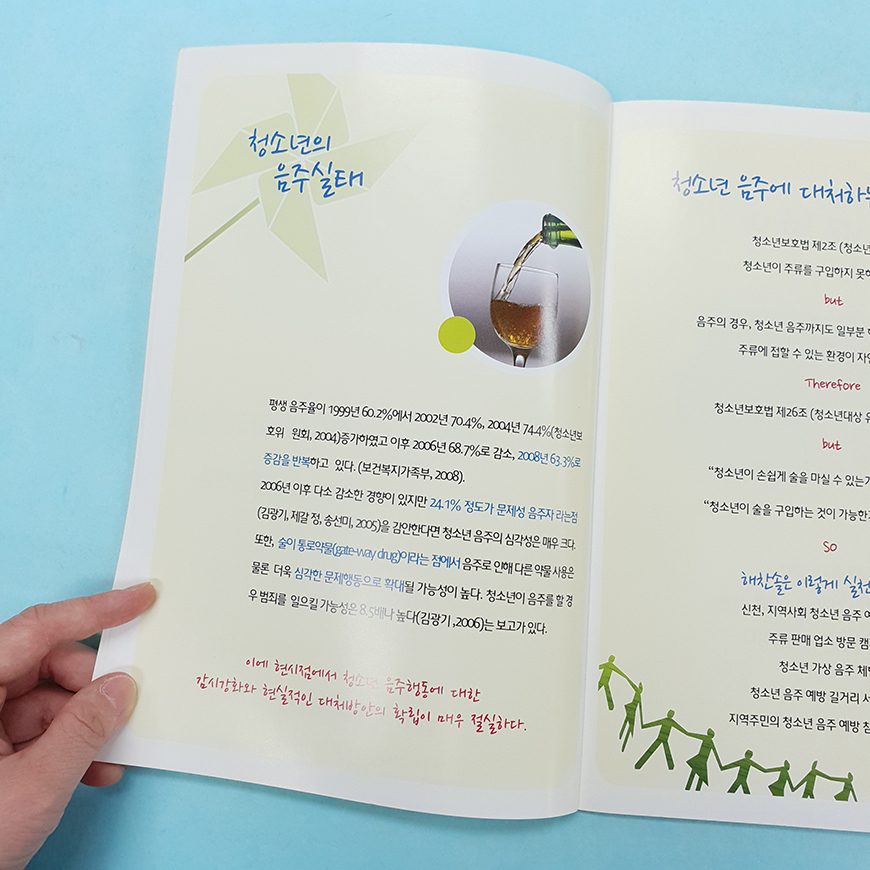 청소년의
음주실태
평생 음주율이 1999년 60.2%에서 2002년 70.4%, 2004년 74.4%(청소년보
호위 원회, 2004)증가하였고 이후 2006년 68.7%로 감소, 2008년 63.3%로
증감을 반복하고 있다. (보건복지가족부, 2008).
2006년 이후 다소 감소한 경향이 있지만 24.1% 정도가 문제성 음주자 라는점
(김광기, 제갈 정, 송선미, 2005)을 감안한다면 청소년 음주의 심각성은 매우 크다.
또한, 술이 통로약물(gate-way drug)이라는 점에서 음주로 인해 다른 약물 사용은
물론 더욱 심각한 문제행동으로 확대될 가능성이 높다. 청소년이 음주를 할 경
우 범죄를 일으킬 가능성은 8.5배나 높다(김광기 ,2006)는 보고가 있다.
이에 현시점에서 청소년 음주행동에 대한
감시강화와 현실적인 대처방안의 확립이 매우 절실하다.
청소년 음주에 대처하
청소년보호법 제2조 (청소년
청소년이 주류를 구입하지 못하
but
음주의 경우, 청소년 음주까지도 일부분
주류에 접할 수 있는 환경이
Therefore
청소년보호법 제26조 (청소년대상
but
“청소년이 손쉽게 술을 마실 수 있는가
“청소년이 술을 구입하는 것이 가능한
so
해찬솔은 이렇게 실천
신천, 지역사회 청소년 음주
주류 판매 업소 방문
청소년 가상 음주
청소년 음주 예방 길거리
지역주민의 청소년 음주 예방